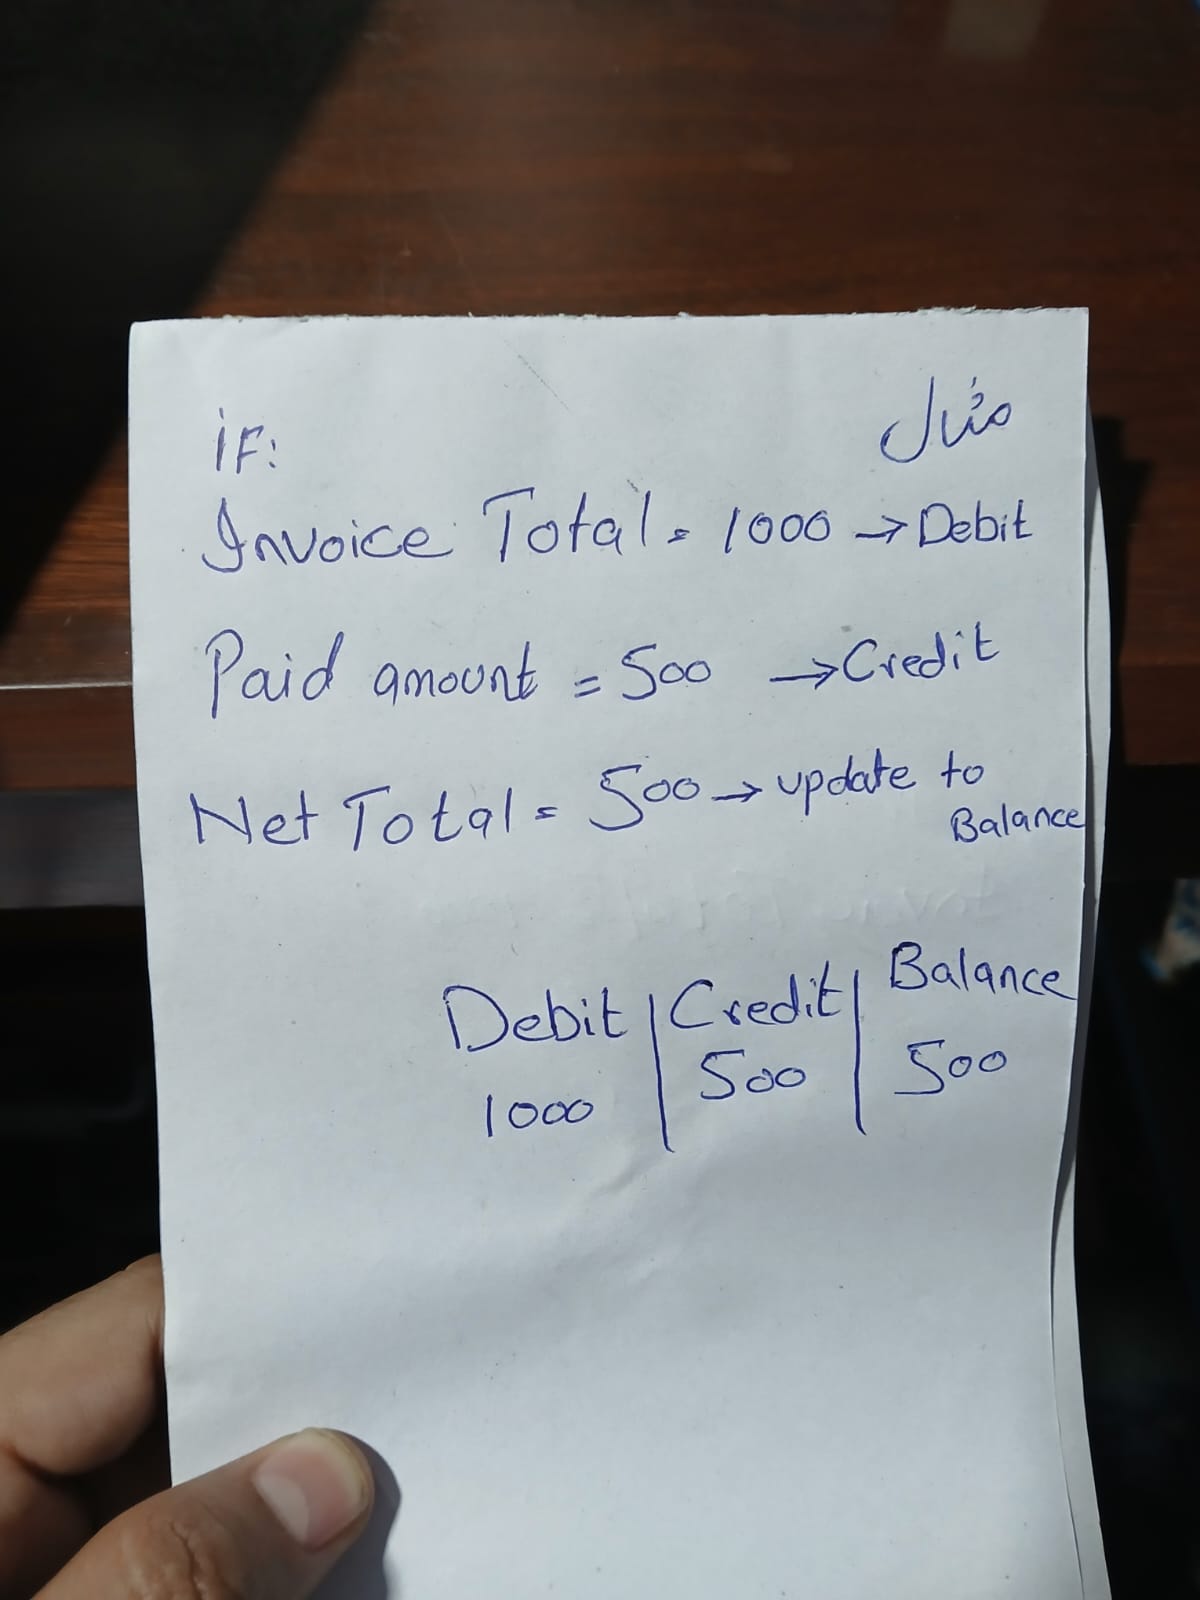 مثال
iF:
Invoice Total = 1000 → Debit
Paid amount = 500 → Credit
Net Total = 500 → update to
Balance
Debit | Credit | Balance
1000 | 500 | 500